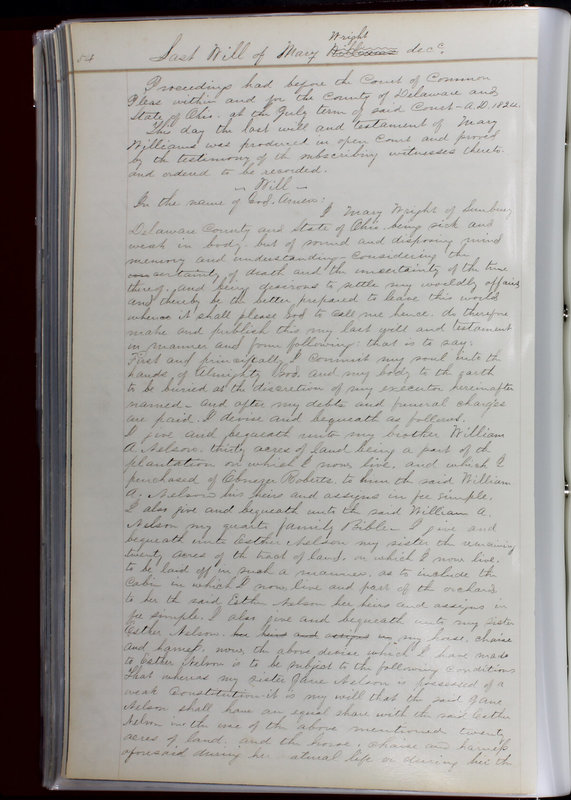 54
Last Will of Mary Wright Williams dec^c.
Proceedings had before the Court of Common
Pleas within and for the County of Delaware and
State of Ohio. at the July term of said Court - A.D. 1824.
This day the last will and testament of Mary
Williams was produced in open Court and proved
by the testimony of the subscribing witnesses thereto.
and ordered to be recorded.
- Will -
In the name of God, Amen:
I Mary Wright of Sunbury
Delaware County and State of Ohio being sick and
weak in body. but of sound and disposing mind
memory and understanding. Considering the
certainty of death and the uncertainty of the time
thereof, and being desirous to settle my worldly affairs
and thereby be the better prepared to leave this world
when it shall please God to call me hence. do therefore
make and publish this my last will and testament
in manner and form following: that is to say:
First and principally I commit my soul into the
hands of Almighty God. and my body to the earth
to be buried at the discretion of my executor hereinafter
named - and after my debts and funeral charges
are paid. I devise and bequeath as follows.
I give and bequeath unto my brother William
A. Nelson. thirty acres of land being a part of the
plantation on which I now live. and which I
purchased of Ebenezer Roberts. to him the said William
A. Nelson his heirs and assigns in fee simple.
I also give and bequeath unto the said William A.
Nelson my quarto family Bible - I give and
bequeath unto Esther Nelson my sister the remaining
twenty acres of the tract of land. on which I now live.
to be laid off in such a manner. as to include the
Cabin in which I now live and part of the orchard
to her the said Esther Nelson her heirs and assigns in
fee simple. I also give and bequeath unto my sister
Esther Nelson. her heirs and assigns in my horse, chaise
and harness. now, the above devise which I have made
to Esther Nelson is to be subject to the following conditions
That whereas my sister Jane Nelson is possessed of a
weak Constitution - it is my will that the said Jane
Nelson shall have an equal share with the said Esther
Nelson in the use of the above mentioned twenty
acres of land. and the horse, chaise and harness
aforesaid during her natural life or during her the